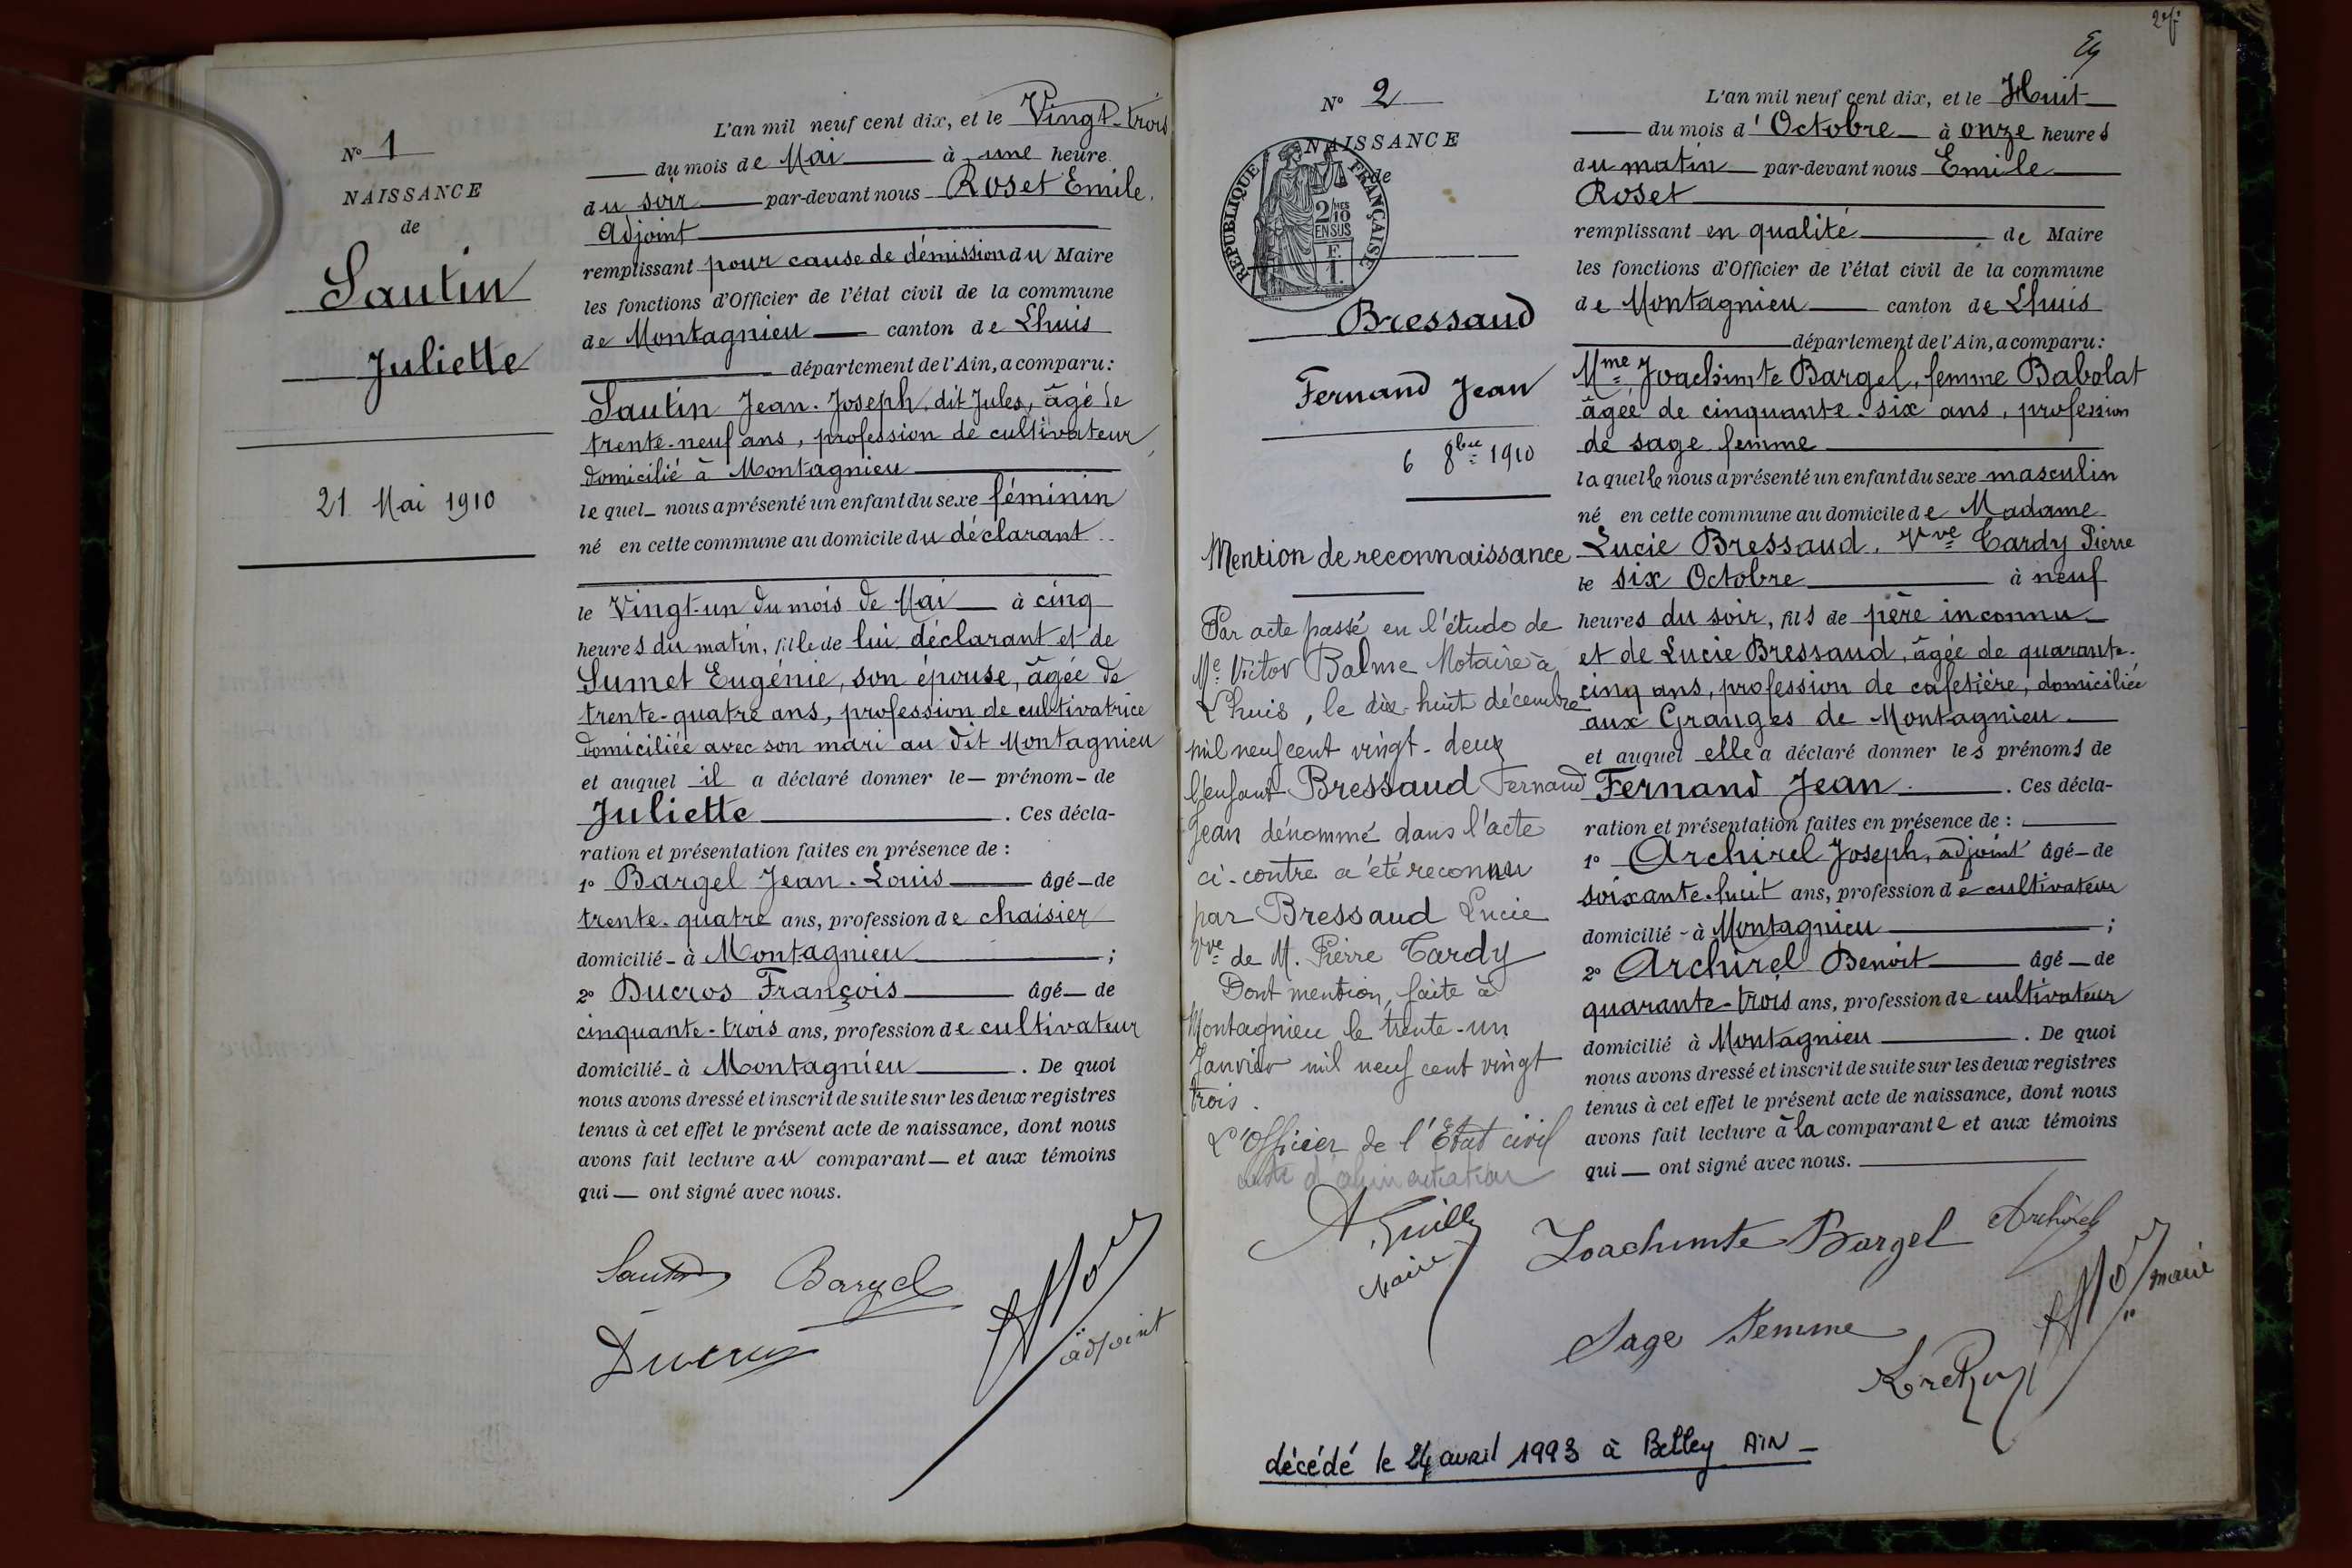 N° 1
NAISSANCE
de
Sautin
Juliette
21 Mai 1910
L'an mil neuf cent dix, et le Vingt-trois
du mois de Mai à une heure
du soir par-devant nous Roset Emile,
Adjoint
remplissant pour cause de démission du Maire
les fonctions d'Officier de l'état civil de la commune
de Montagnieu canton de Lhuis
département de l'Ain, a comparu :
Sautin Jean-Joseph, dit Jules, âgé de
trente-neuf ans, profession de cultivateur,
domicilié à Montagnieu
lequel nous a présenté un enfant du sexe féminin
né en cette commune au domicile du déclarant
le Vingt-un du mois de Mai à cinq
heures du matin, fille de lui déclarant et de
Sumet Eugénie, son épouse, âgée de
trente-quatre ans, profession de cultivatrice
domiciliée avec son mari au dit Montagnieu
et auquel il a déclaré donner le prénom de
Juliette. Ces décla-
ration et présentation faites en présence de :
1° Bargel Jean-Louis âgé de
trente-quatre ans, profession de chaisier
domicilié à Montagnieu ;
2° Ducros François âgé de
cinquante-trois ans, profession de cultivateur
domicilié à Montagnieu. De quoi
nous avons dressé et inscrit de suite sur les deux registres
tenus à cet effet le présent acte de naissance, dont nous
avons fait lecture au comparant et aux témoins
qui ont signé avec nous.
Sautin Bargel
Ducros
adjoint
N° 2
NAISSANCE
de
REPUBLIQUE FRANÇAISE
2/10MES
EN SUS
F.
1.
Bressaud
Fernand Jean
6 8bre 1910
Mention de reconnaissance
Par acte passé en l'étude de
Me Victor Balme Notaire à
Lhuis, le dix-huit décembre
mil neuf cent vingt-deux
l'enfant Bressaud Fernand
Jean dénommé dans l'acte
ci-contre a été reconnu
par Bressaud Lucie
Vve de M. Pierre Tardy
Dont mention, faite à
Montagnieu le trente-un
Janvier mil neuf cent vingt
trois.
L'Officier de l'Etat civil
Maire
L'an mil neuf cent dix, et le Huit
du mois d'Octobre à onze heures
du matin par-devant nous Emile
Roset
remplissant en qualité de Maire
les fonctions d'Officier de l'état civil de la commune
de Montagnieu canton de Lhuis
département de l'Ain, a comparu :
Mme Joachimte Bargel, femme Babolat
âgée de cinquante-six ans, profession
de sage femme
laquelle nous a présenté un enfant du sexe masculin
né en cette commune au domicile de Madame
Lucie Bressaud, Vve Tardy Pierre
le six Octobre à neuf
heures du soir, fils de père inconnu
et de Lucie Bressaud, âgée de quarante-
cinq ans, profession de cafetière, domiciliée
aux Granges de Montagnieu
et auquel elle a déclaré donner les prénoms de
Fernand Jean. Ces décla-
ration et présentation faites en présence de :
1° Archirel Joseph, adjoint âgé de
soixante-huit ans, profession de cultivateur
domicilié à Montagnieu ;
2° Archirel Benoit âgé de
quarante-trois ans, profession de cultivateur
domicilié à Montagnieu. De quoi
nous avons dressé et inscrit de suite sur les deux registres
tenus à cet effet le présent acte de naissance, dont nous
avons fait lecture à la comparante et aux témoins
qui ont signé avec nous.
Joachimte Bargel Archirel
maire
Sage femme
décédé le 24 avril 1993 à Belley AIN